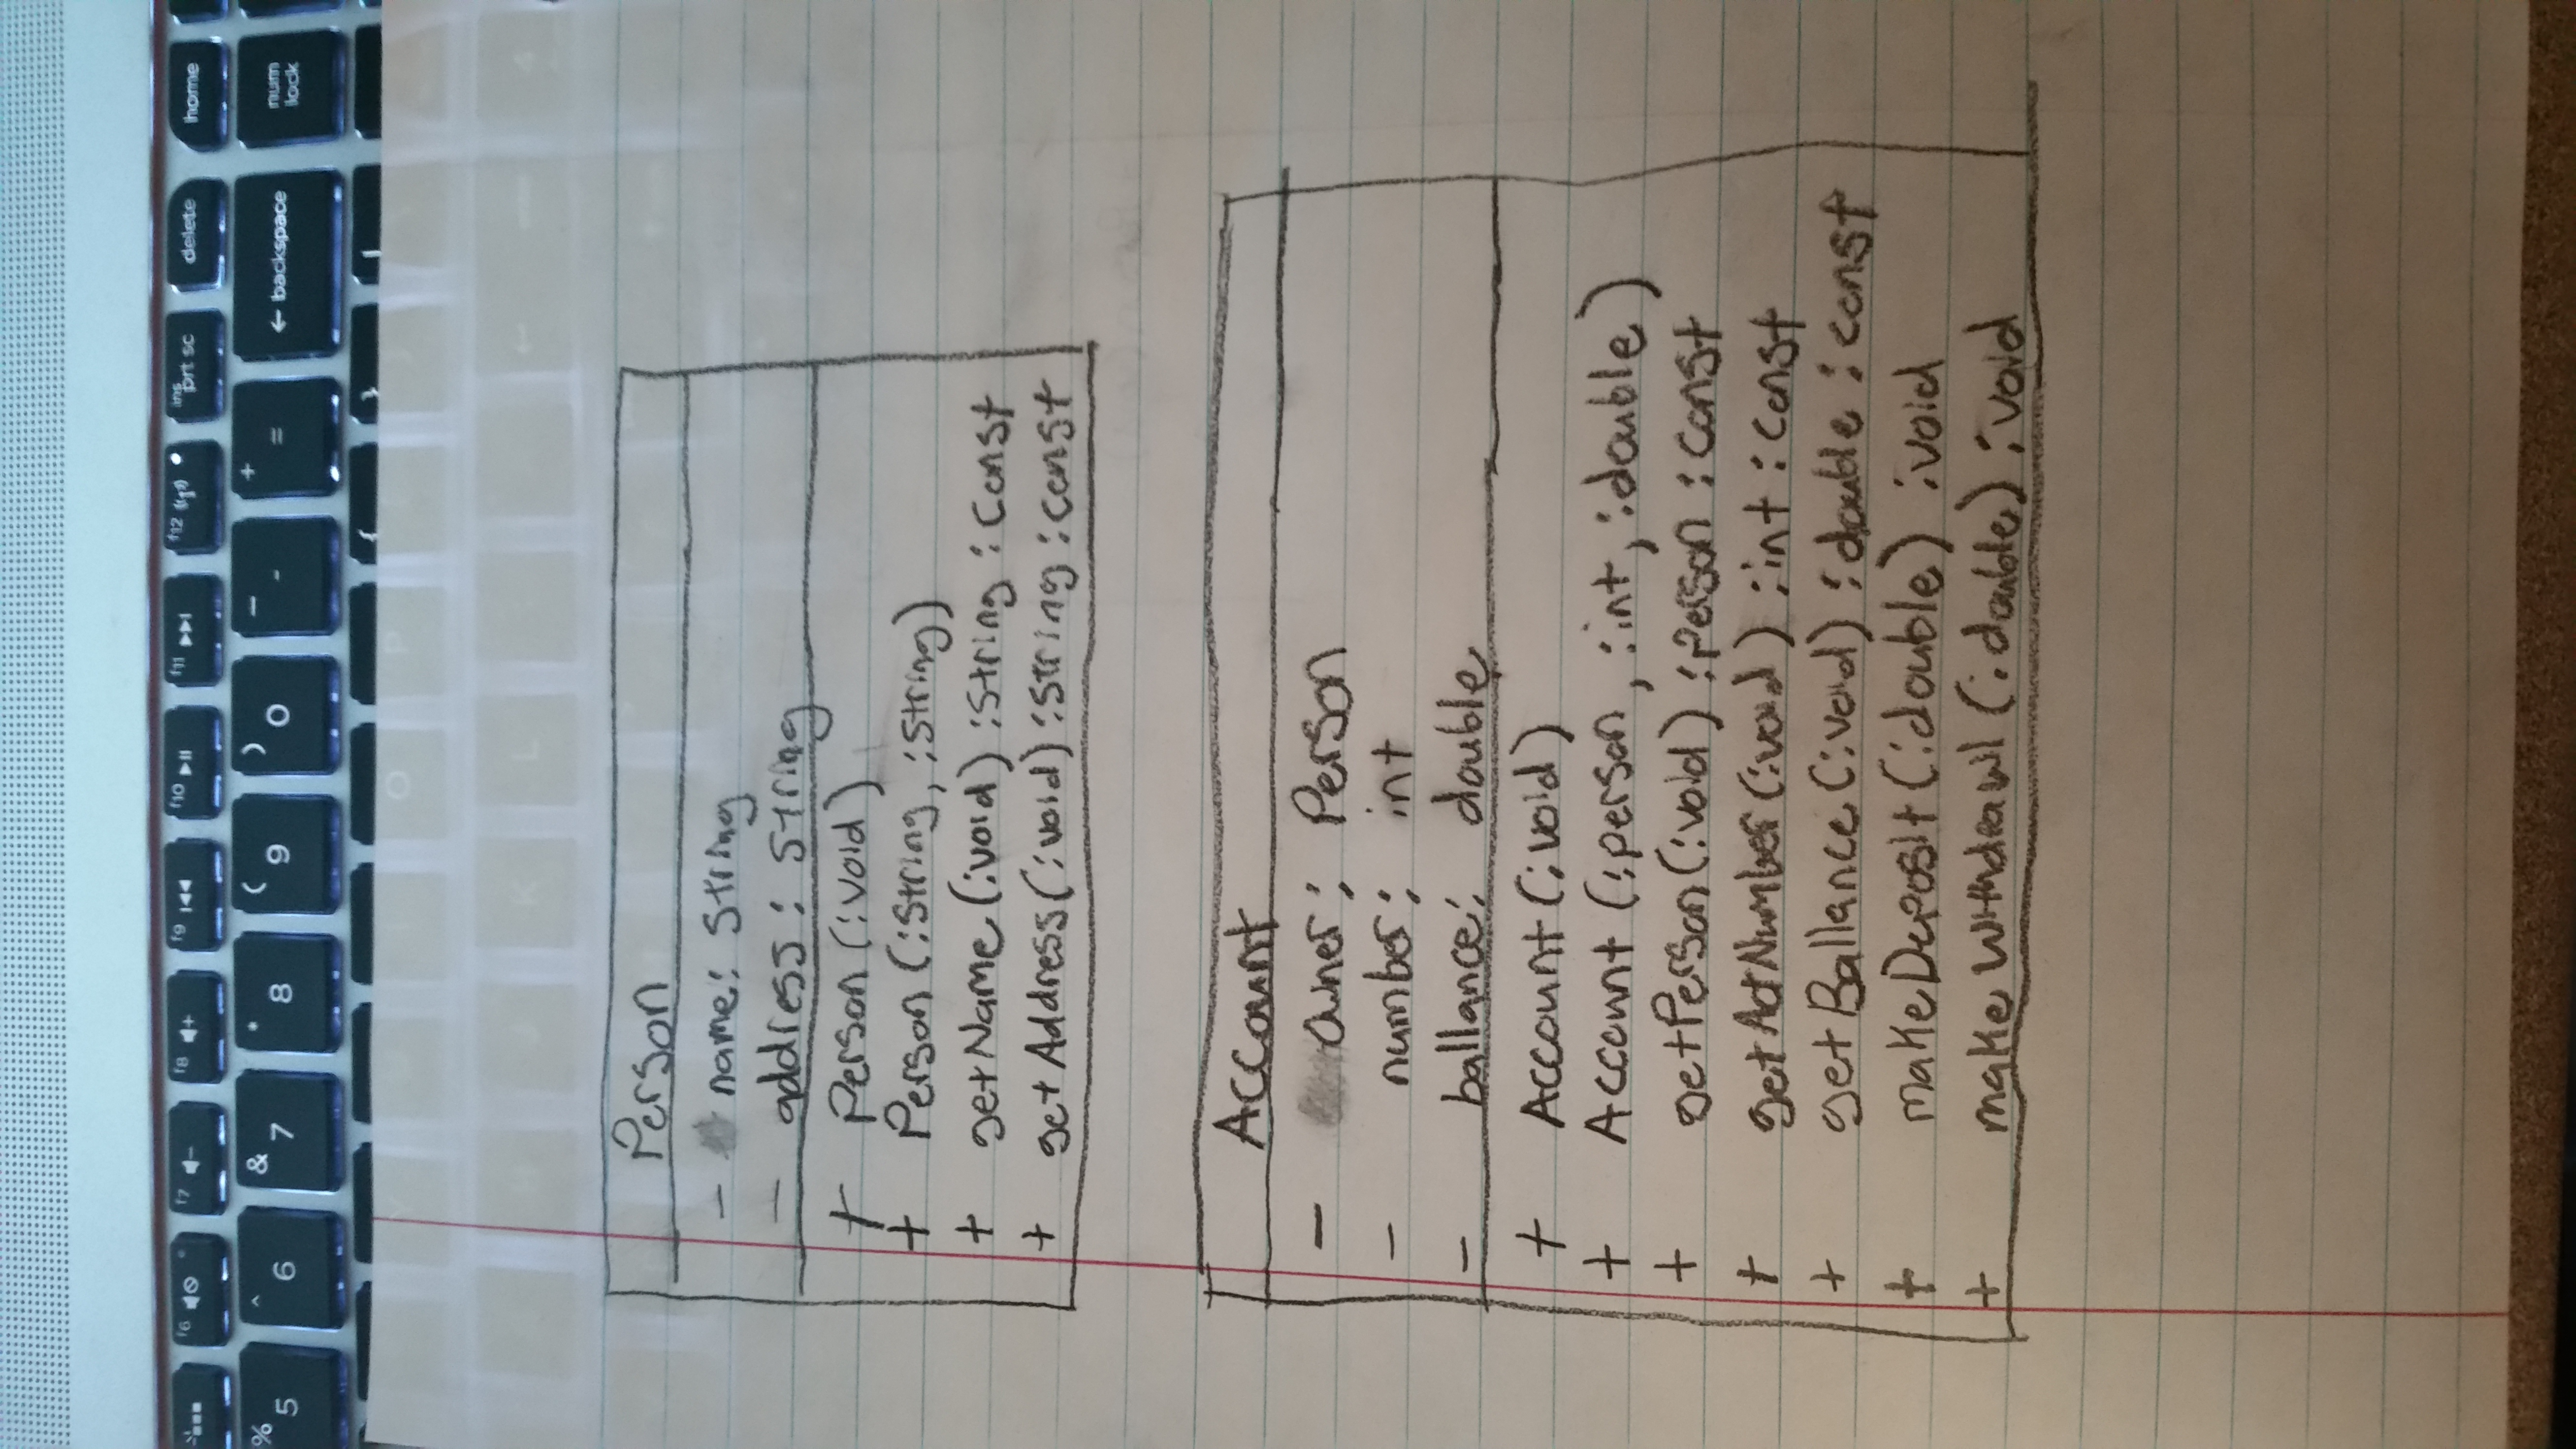 f6 f7 f8 f9 f10 f11 f12 ins prt sc delete home
% 5 ^ 6 & 7 * 8 ( 9 ) 0 — - + = ← backspace num lock
{ } |
O P
H J K L 4
Person
- name: String
- address: String
+ Person (:void)
+ Person (:String, :String)
+ getName (:void) :String : Const
+ getAddress (:void) :String : const
Account
- owner: Person
- number: int
- ballance: double
+ Account (:void)
+ Account (:person, :int, :double)
+ getPerson (:void) :person : const
+ getActNumber (:void) :int : const
+ getBallance (:void) :double : const
+ makeDeposit (:double) :void
+ makeWithdrawl (:double) :void